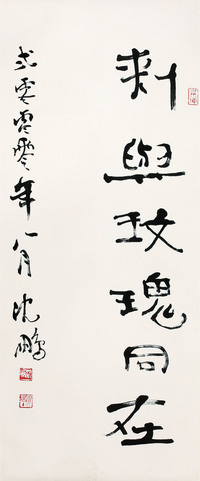 刺與玫瑰同在
弍零零零年八月沈鵬